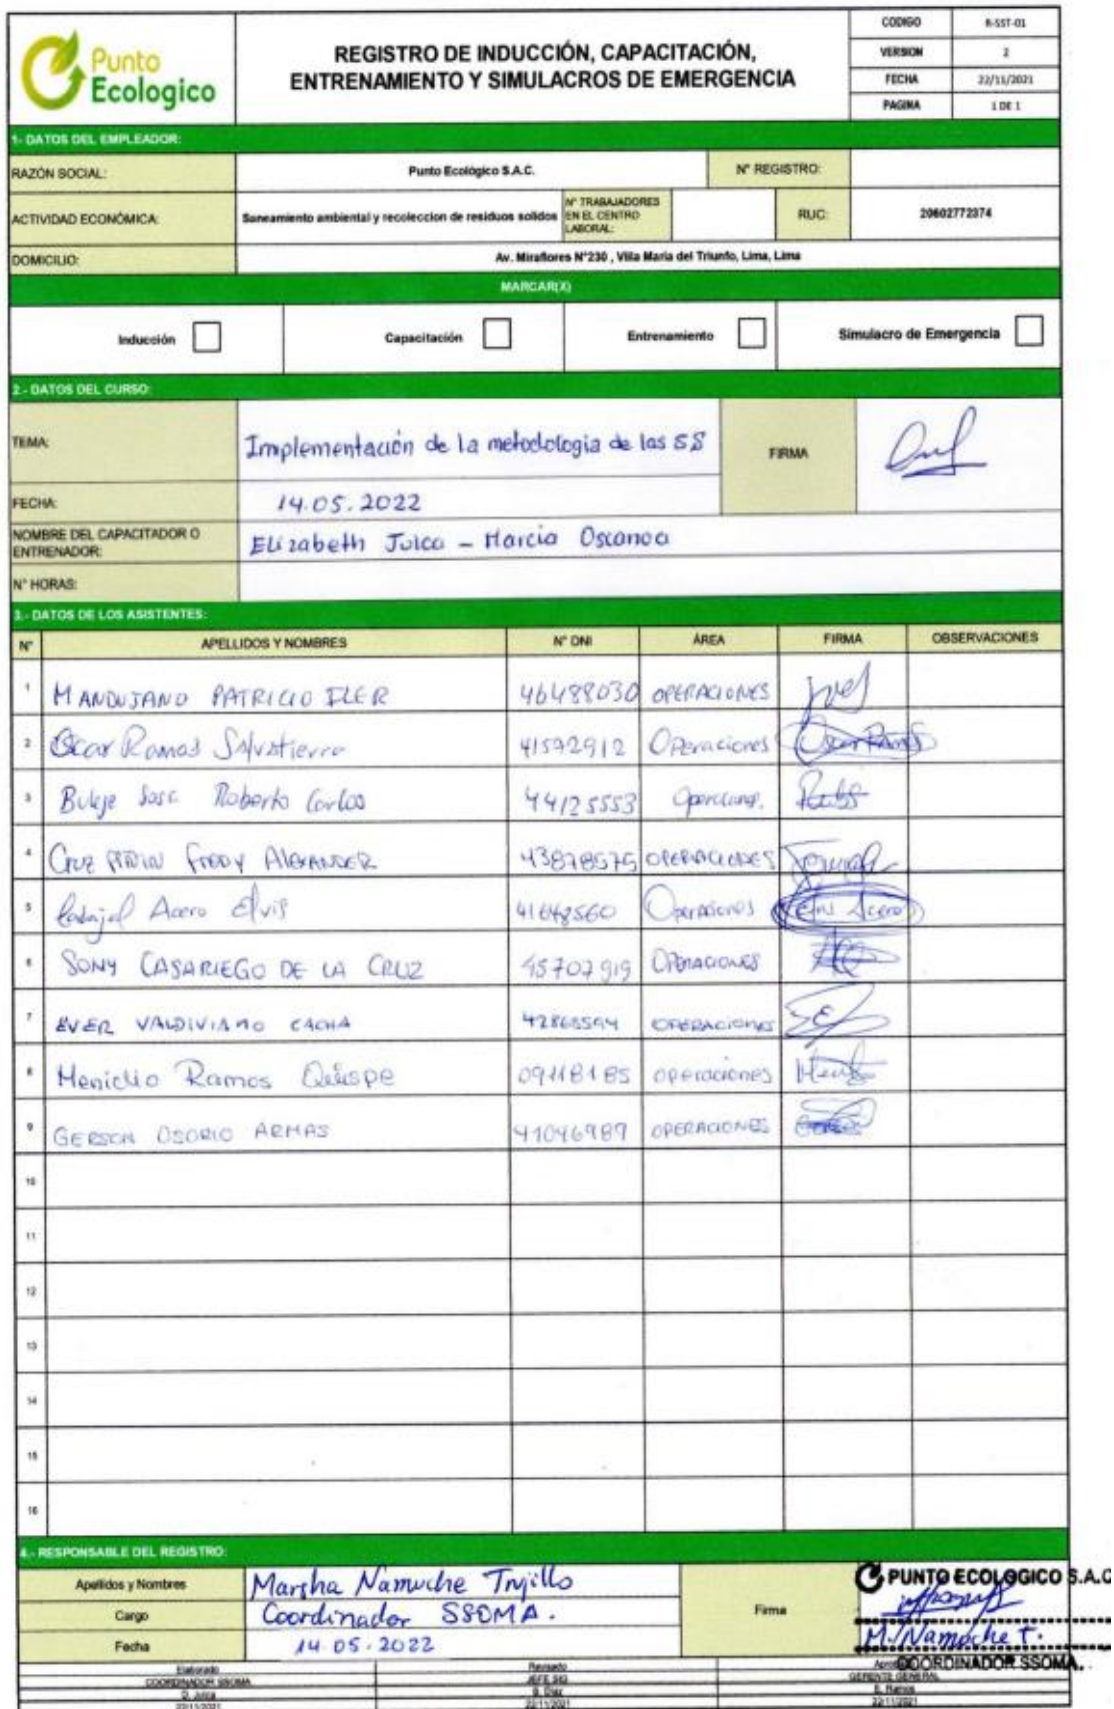 Punto
Ecologico
REGISTRO DE INDUCCIÓN, CAPACITACIÓN,
ENTRENAMIENTO Y SIMULACROS DE EMERGENCIA
CODIGO R-SST-01
VERSION 2
FECHA 22/11/2021
PAGINA 1 DE 1
1- DATOS DEL EMPLEADOR:
RAZÓN SOCIAL: Punto Ecológico S.A.C. N° REGISTRO:
ACTIVIDAD ECONÓMICA: Saneamiento ambiental y recoleccion de residuos solidos N° TRABAJADORES EN EL CENTRO LABORAL: RUC: 20602772374
DOMICILIO: Av. Miraflores N°230 , Villa Maria del Triunfo, Lima, Lima
MARCAR(X)
Inducción Capacitación Entrenamiento Simulacro de Emergencia
2.- DATOS DEL CURSO:
TEMA: Implementación de la metodologia de las 5S FIRMA
FECHA: 14.05.2022
NOMBRE DEL CAPACITADOR O ENTRENADOR: Elizabeth Julca - Marcia Oscanoa
N° HORAS:
3.- DATOS DE LOS ASISTENTES:
N° APELLIDOS Y NOMBRES N° DNI ÁREA FIRMA OBSERVACIONES
1 MANDUJANO PATRICIO ILER 46488030 OPERACIONES
2 Oscar Ramos Salvatierra 41592912 Operaciones Oscar Ramos
3 Buleje Sosa Roberto Carlos 44125553
4 CRUZ FREDY ALEXANDER 43878575 OPERACIONES
5 Acero Elvis 41648560 Operaciones Elvis Acero
6 SONY CASARIEGO DE LA CRUZ 45707919 OPERACIONES
7 EVER VALDIVIANO CACHA OPERACIONES
8 Ramos Quispe 09118185 operaciones
9 GERSON OSORIO ARMAS 41046987 OPERACIONES
10
11
12
13
14
15
16
4.- RESPONSABLE DEL REGISTRO:
Apellidos y Nombres Marsha Namuche Trujillo
Cargo Coordinador SSOMA.
Fecha 14.05.2022
Firma
PUNTO ECOLOGICO S.A.C
M. Namuche T.
COORDINADOR SSOMA.
Elaborado Revisado
COORDINADOR SSOMA JEFE SIG GERENTE GENERAL
D. Julca B. Diaz E. Ramos
22/11/2021 22/11/2021 22/11/2021